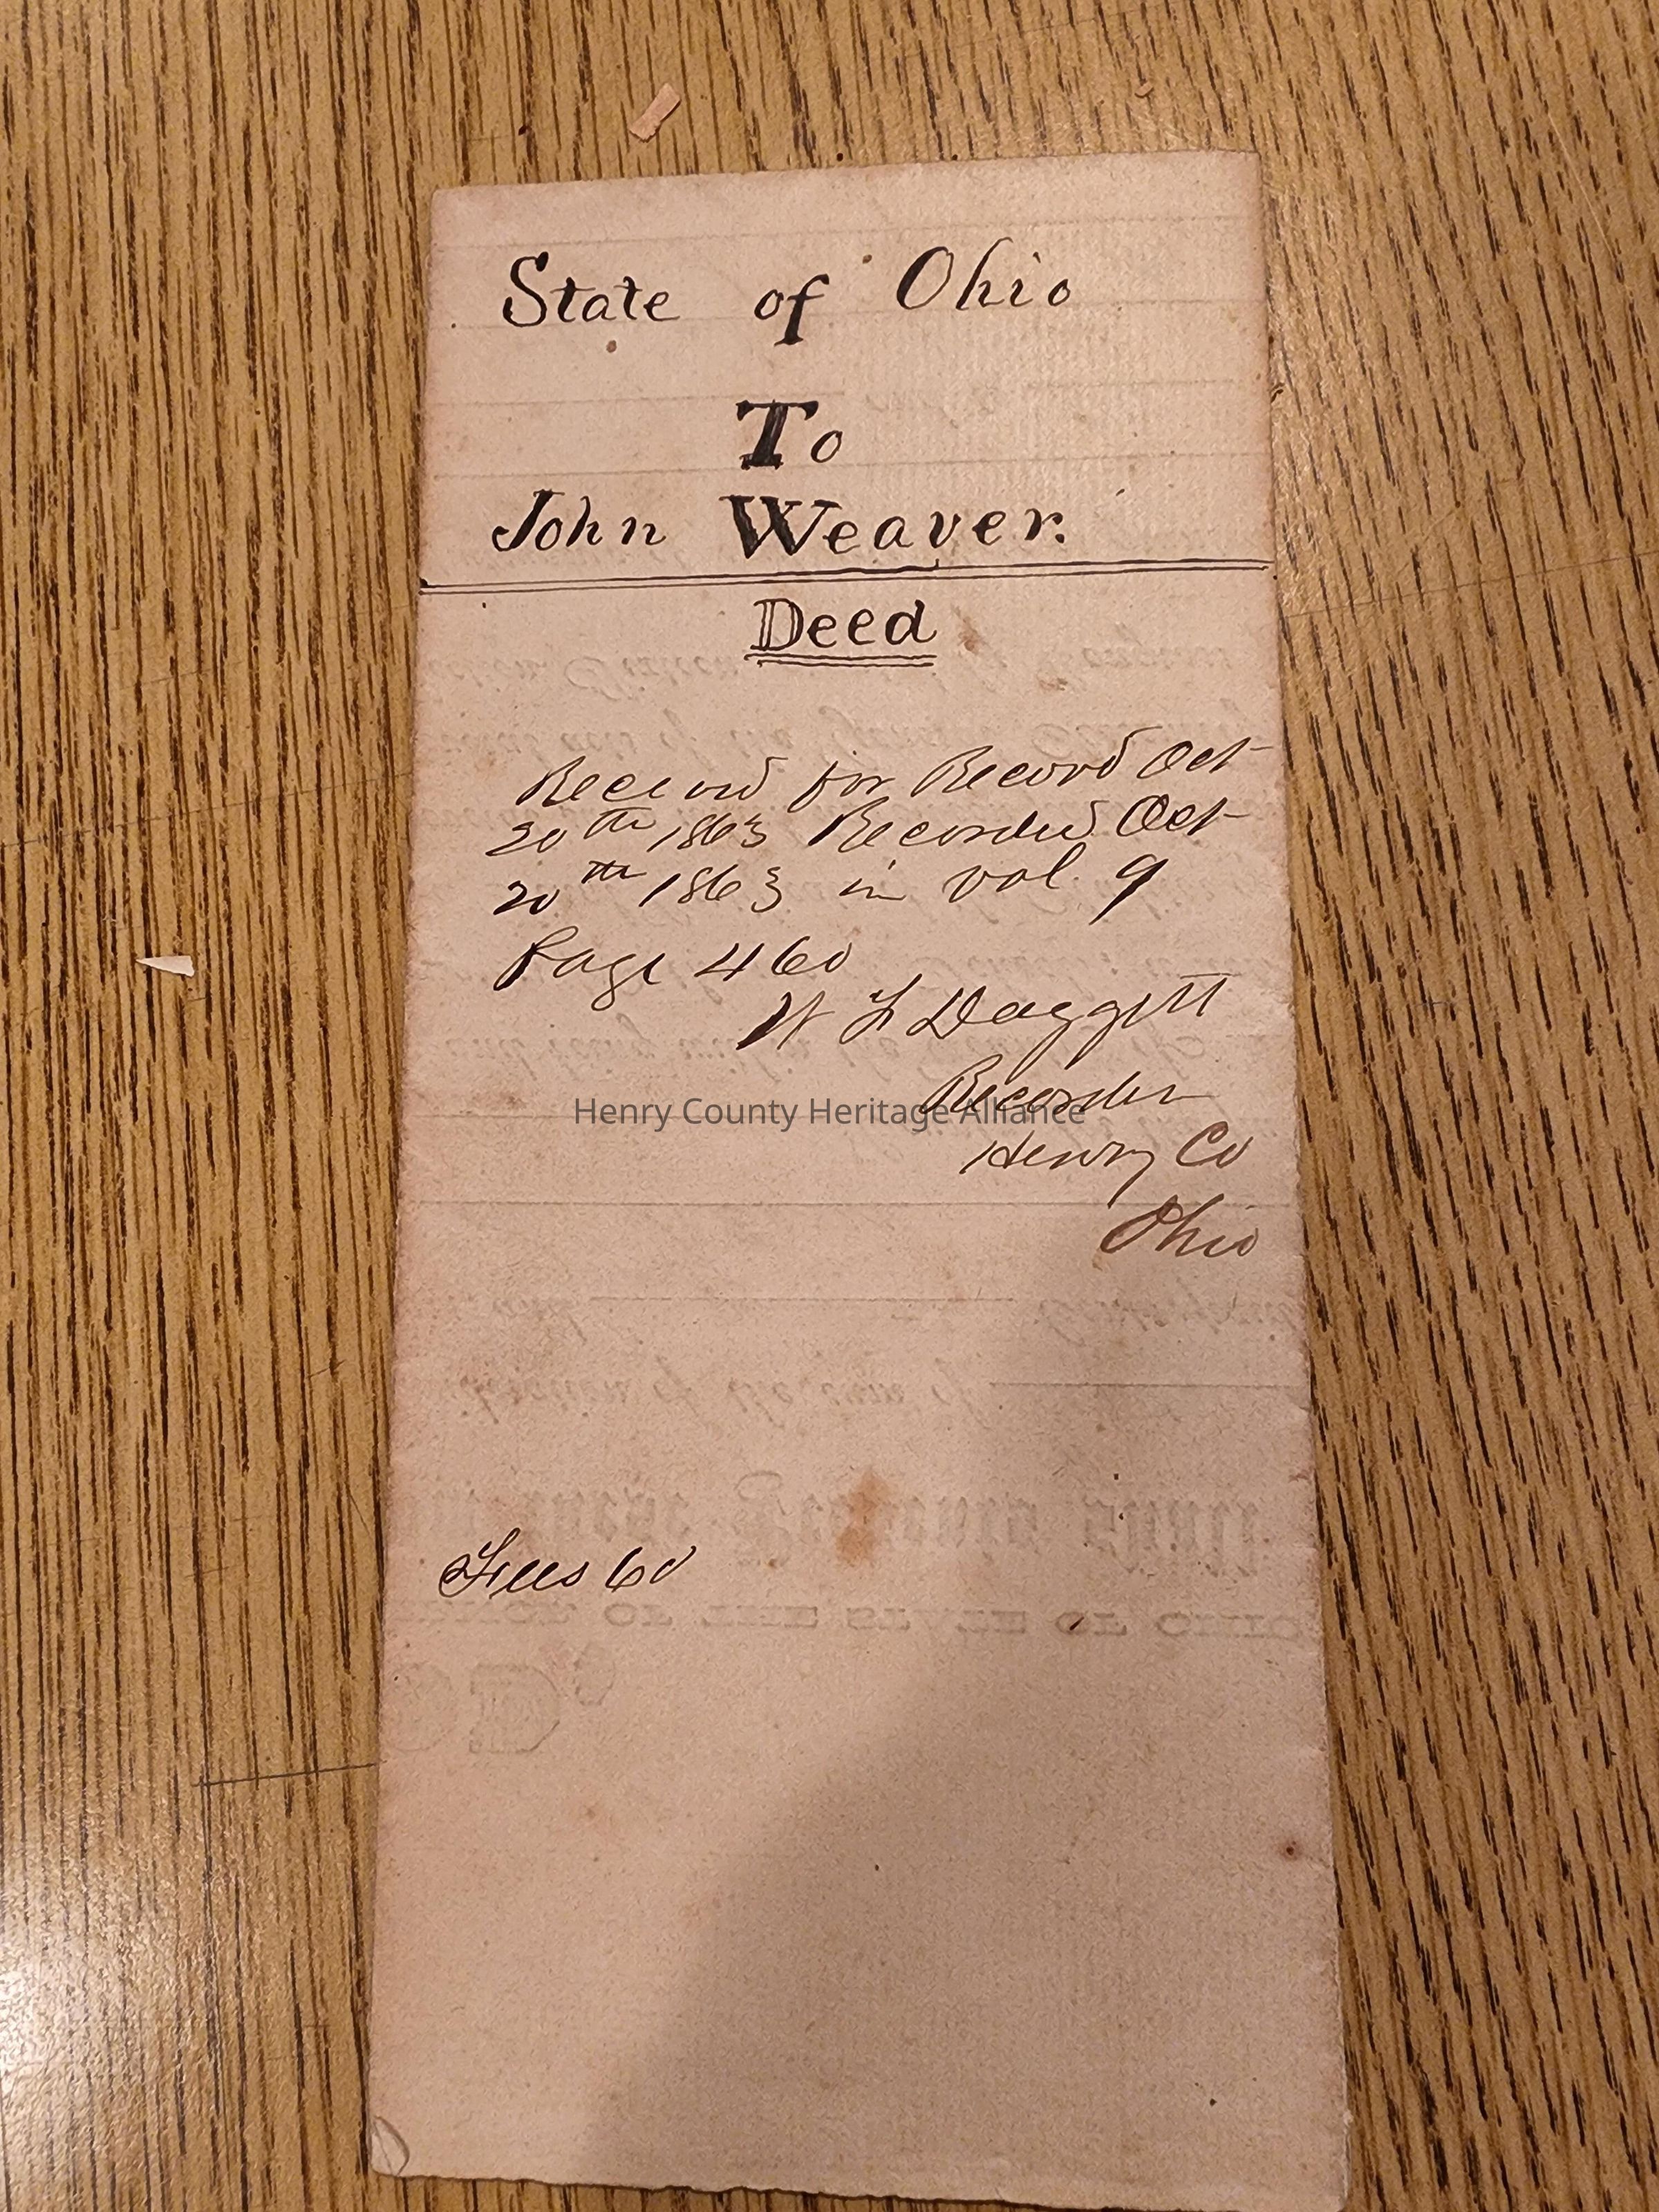 State of Ohio
To
John Weaver.
Deed
Received for Record Oct
20th 1863 Recorded Oct
20th 1863 in vol. 9
Page 460
W F Daggett
Recorder
Henry County Heritage Alliance
Henry Co
Ohio
Fees 60